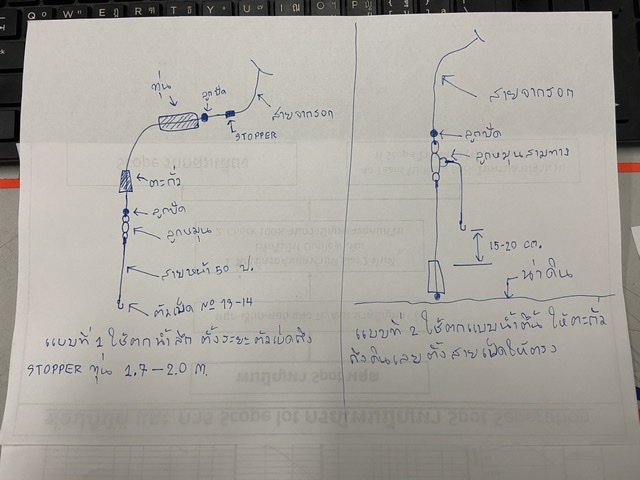 ทุ่น
ลูกปัด
สายจากรอก
STOPPER
ตะกั่ว
ลูกปัด
ลูกหมุน
สายหน้า 50 ป.
ตัวเบ็ด No 13-14
แบบที่ 1 ใช้ตกน้ำลึก ตั้งระยะตัวเบ็ดถึง
STOPPER ทุ่น 1.7-2.0  m.
สายจากรอก
ลูกปัด
ลูกหมุนสามทาง
15-20 cm.
น่าดิน
แบบที่ 2 ใช้ตกแบบน้ำตื้น ให้ตะกั่ว
ถึงดินเลย ตั้งสายเบ็ดให้ตรง